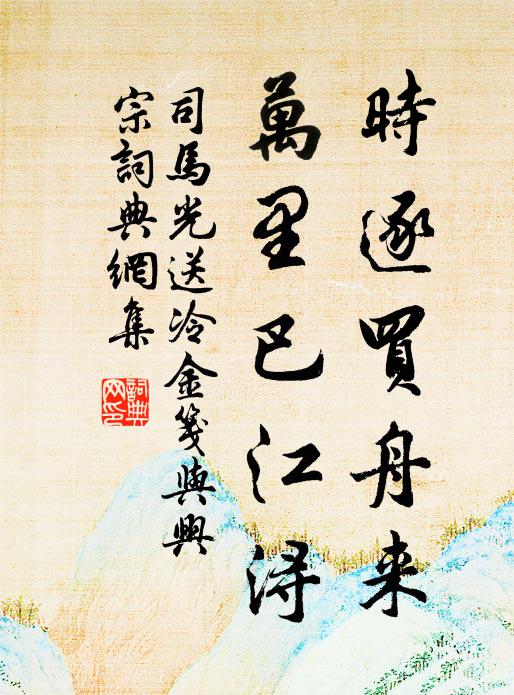 時逐買舟来
萬里巴江浔
司馬光送冷金箋與興
宗詞典網集
詞典
网印